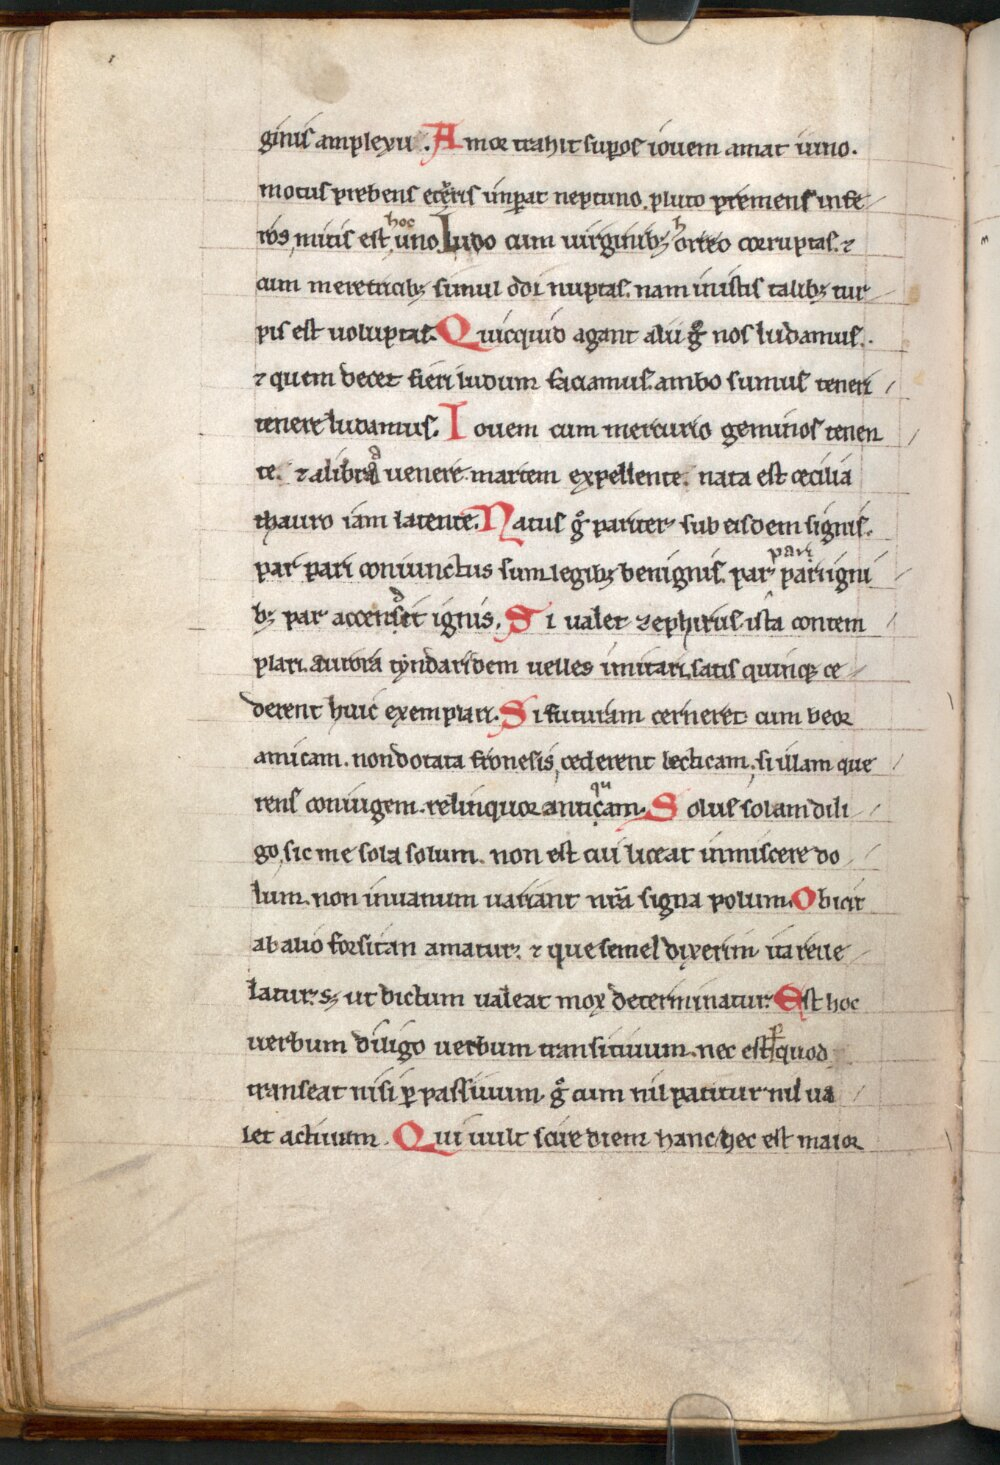 ginis amplexu. Amor trahit sup̄os iouem amat iuno.
motus prebens ceteris inꝑat neptuno. pluto premens infe
ros mitis est hoc uno Ludo cum uirginibꝫ horreo corruptas. ⁊
cum meretricibꝫ simul odi nuptas. nam in istis talibꝫ tur
pis est uoluptas. Quicquid agant alii gͦ nos ludamus.
⁊ quem decet fieri ludum faciamus. ambo sumus teneri
tenere ludamus. Iouem cum mercurio geminos tenen
te. ⁊ a libra uenere. martem expellente. nata est cecilia
thauro iam latente. Natus gͦ pariter sub eisdem signis.
par pari coniunctus sum legibꝫ benignis. par pari pari igni
bꝫ par accenderet ignis. Si ualet zephirus ista contem
plari. aurora tyndaridem uelles imitari. satis quinqꝫ ce
derent huic exemplari. Si futuram cerneret cum deor
amicam. non dotata fronesis, cederent lecticam. si illam que
rens coniugem. relinquor antiquam. Solus solam dili
go, sic me sola solum. non est cui liceat inmiscere do
lum. non in uanum uariant nr̄a signa polum. Obicit
ab alio forsitan amatur. ⁊ que semel dixerim ita reue
latur. sꝫ ut dictum ualeat mox determinatur. Est hoc
uerbum diligo uerbum transitiuum. nec est ꝑ quod
transeat nisi ꝑ passiuum. gͦ cum nil patitur nil ua
let actiuum. Qui uult scire diem hanc hec est maior